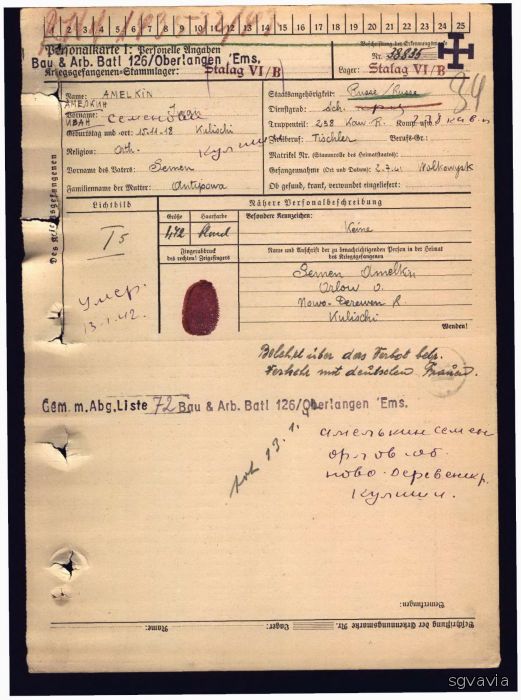 1 2 3 4 5 6 7 8 9 10 11 12 13 14 15 16 17 18 19 20 21 22 23 24 25
Personalkarte I: Personelle Angaben
Beschriftung der Erkennungsmarke
Bau & Arb. Batl 126/Oberlangen 'Ems.
Nr. 38835
Kriegsgefangenen-Stammlager: Stalag VI/B
Lager: Stalag VI/B
34
Des Kriegsgefangenen
Name: AMELKIN
АМЕЛКИН
Vorname: Iwan
ИВАН СЕМЕНОВИЧ
Geburtstag und -ort 15.11.18 Kulischi
Кулиши
Religion: Orth.
Vorname des Vaters: Semen
Familienname der Mutter: Antipowa
Staatsangehörigkeit: Russe / Russe
Dienstgrad:
Truppenteil: 258 Kaw. R. Komp. usw.:
Zivilberuf: Tischler Berufs-Gr.:
Matrikel Nr. (Stammrolle des Heimatstaates):
Gefangennahme (Ort und Datum): 2.7.41 Wolkowysk
Ob gesund, krank, verwundet eingeliefert:
Lichtbild
Nähere Personalbeschreibung
Größe
Haarfarbe
Besondere Kennzeichen:
172
blond
Keine
Fingerabdruck
des rechten! Zeigefingers
Name und Anschrift der zu benachrichtigenden Person in der Heimat
des Kriegsgefangenen
Semen Amelkin
Orlow o.
Nowo-Derewen R
Kulischi
Wenden!
умер.
13.1.42.
Belehrt über das Verbot betr.
Verkehr mit deutschen Frauen.
Gem. m. Abg. Liste 72 Bau & Arb. Batl 126/Oberlangen 'Ems.
tot 13.1.
Амелькин Семен
Орлов об.
Ново-Деревен р.
Кулиши.
Bemerkungen:
Beschriftung der Erkennungsmarke Nr. Lager: Name:
sgvavia